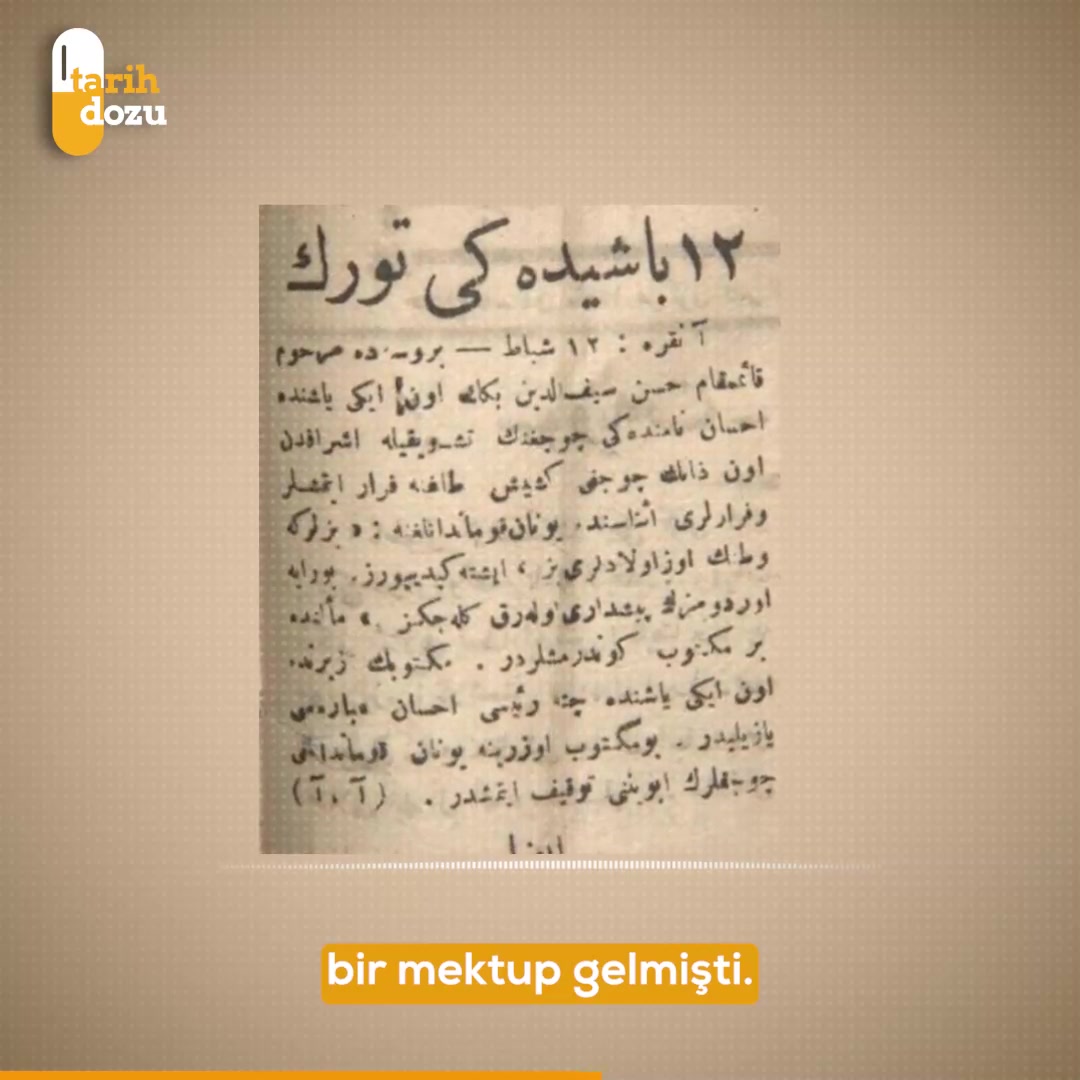 tarih
dozu
١٢ باشیده کی تورك
آنقره : ١٢ شباط — بروسه ده مرحوم
قائممقام حسن سیف‌الدین بكك اون ایکی یاشنده
احسان نامنده‌کی چوجغنك تشویقیله اشرافدن
اون ذاتك چوجغی کشیش طاغنه فرار ایتمشلر
وفرارلری اثناسنده یونان قوماندانلغنه : « بزلرکه
وطنك اوز اولادلری یز ، ایشته کیدییورز . بورایه
اوردومزك پیشداری اوله‌رق کله‌جکز . » مآلنده
بر مکتوب کوندرمشلردر . مکتوبك زیرنده
اون ایکی یاشنده چته رئیسی احسان عباره‌سی
یازیلیدر . بومکتوب اوزرینه یونان قوماندانی
چوجقلرك ابویننی توقیف ایتمشدر . (آ ، آ)
bir mektup gelmişti.